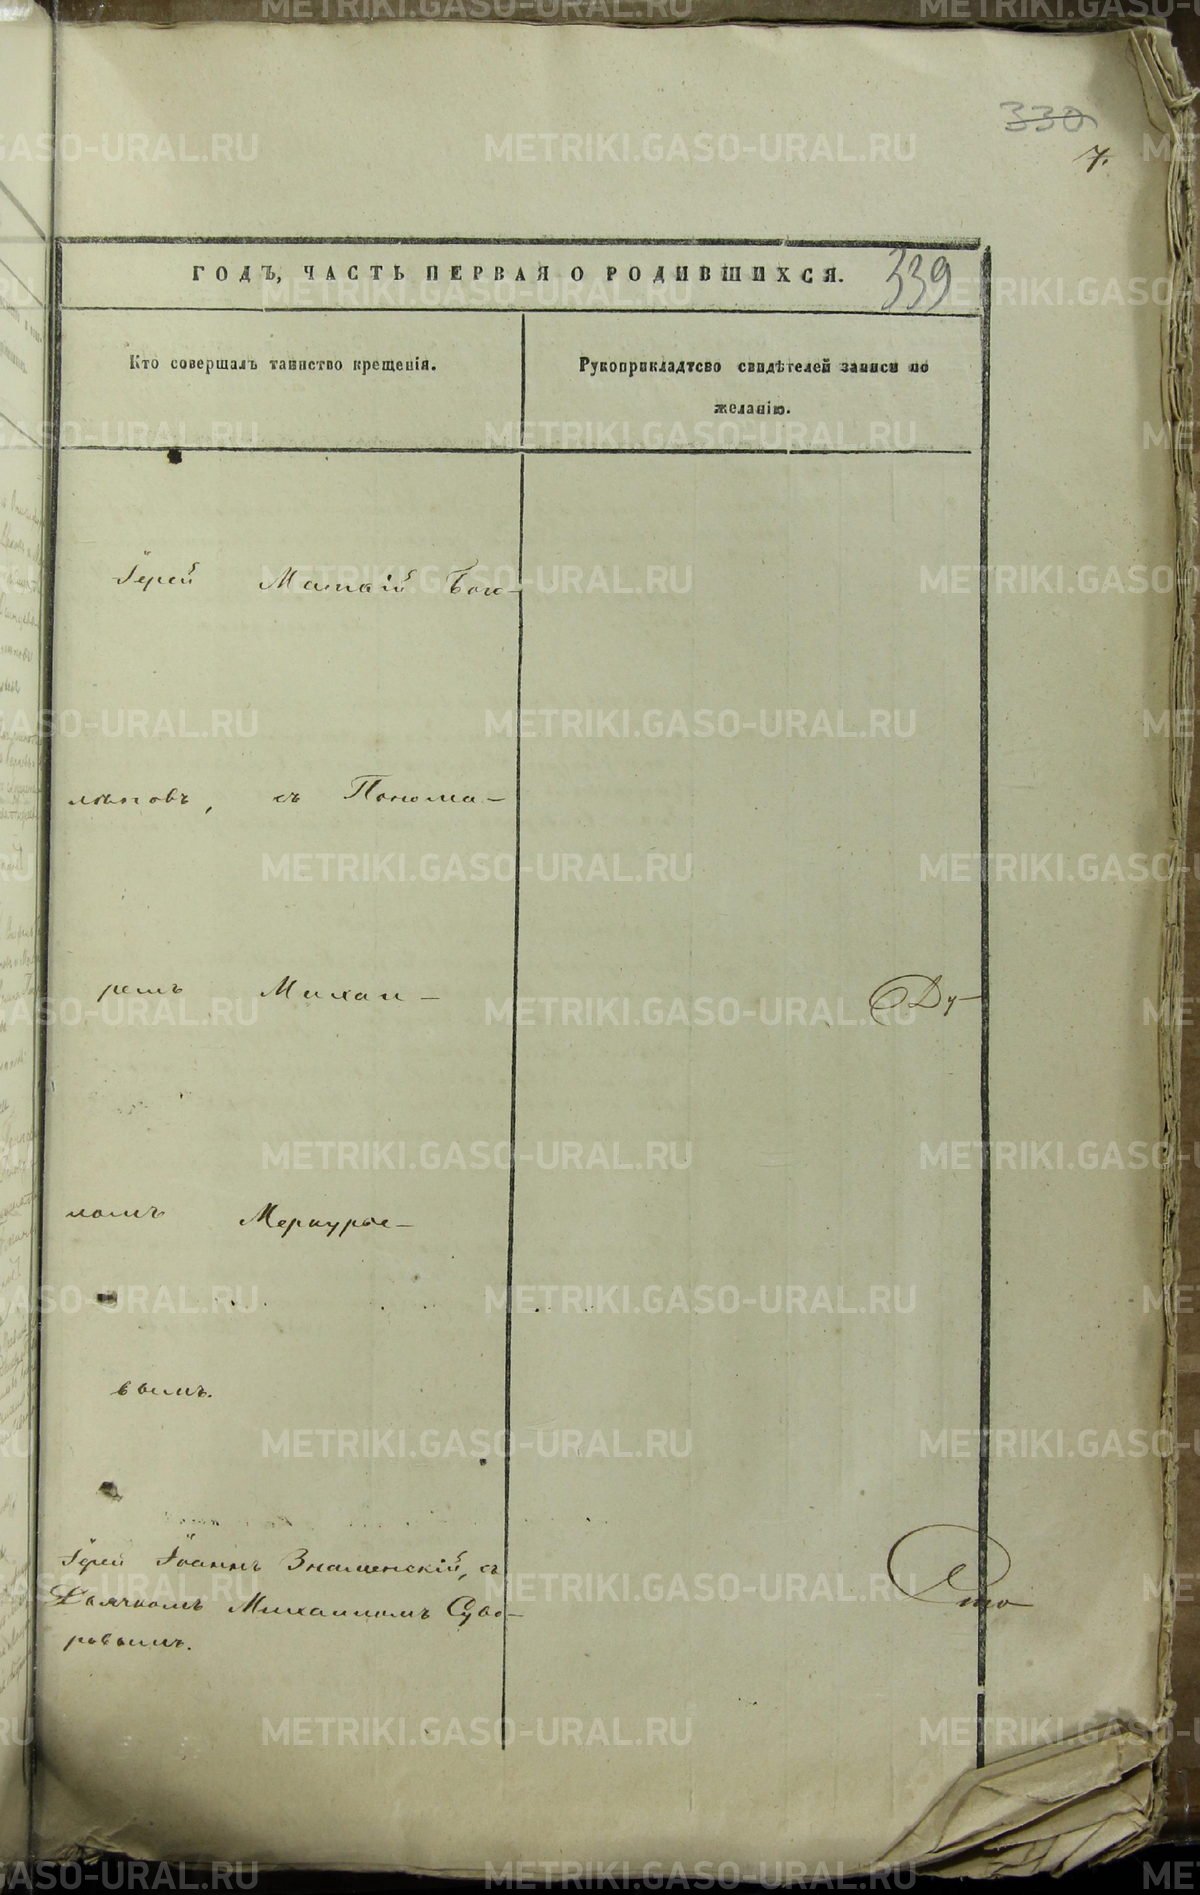 330
7.
ГОДЪ, ЧАСТЬ ПЕРВАЯ О РОДИВШИХСЯ.
339
Кто совершалъ таинство крещенія.
Рукоприкладтсво свидѣтелей записи по
желанію.
Іерей Матѳій Бого-
лѣповъ, съ Понома-
ремъ Михаи-
Ду-
ломъ Меркурье-
вымъ.
Іерей Іоаннъ Знаменскій, съ
Дьячкомъ Михаиломъ Суво-
ровымъ.
METRIKI.GASO-URAL.RU